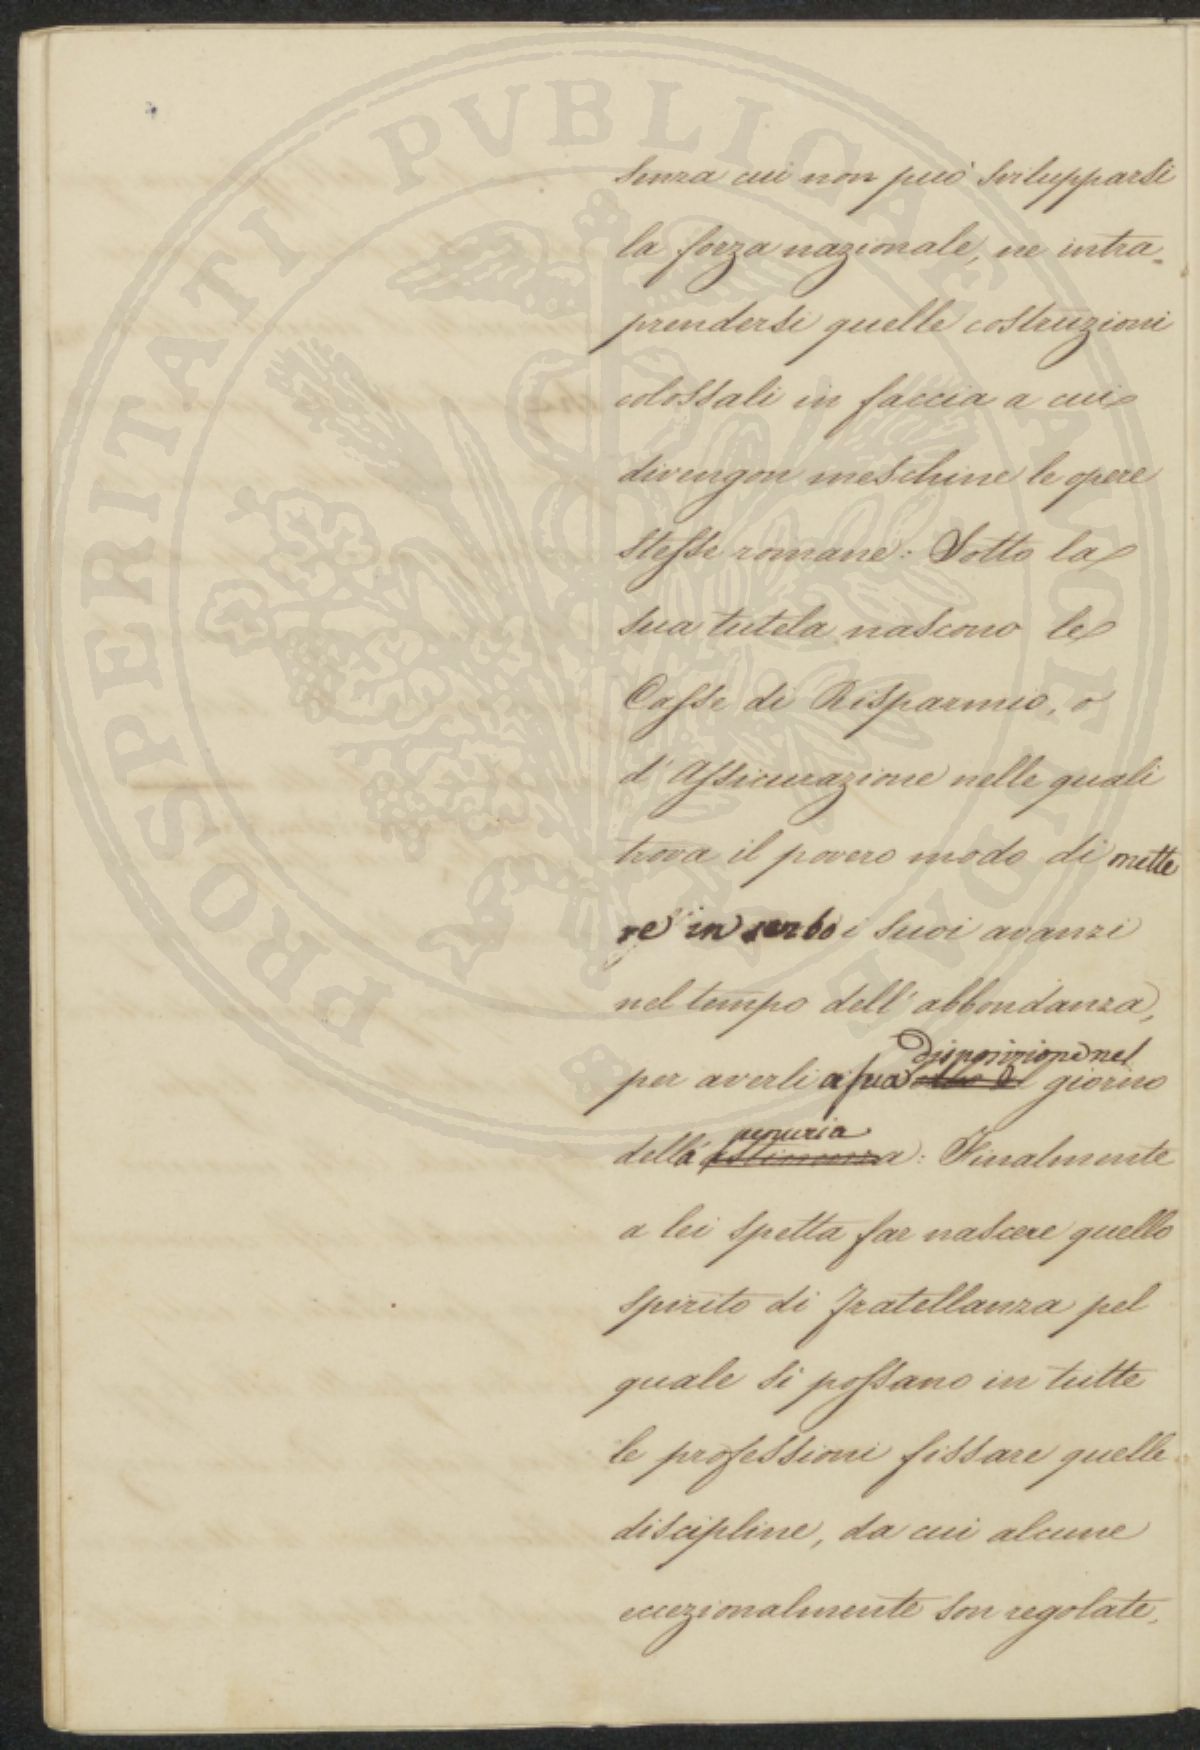 PROSPERITATI PVBLICAE AVGENDAE
senza cui non può svilupparsi
la forza nazionale, ne intra=
prendersi quelle costruzioni
colossali in faccia a cui
divengon meschine le opere
stesse romane: Sotto la
sua tutela nascono le
Casse di Risparmio, o
d'Assicurazione nelle quali
trova il povero modo di mette
re in serbo i suoi avanzi
nel tempo dell'abbondanza,
disposizione nel
per averli a sua giorno
penuria
della astinenza: Finalmente
a lei spetta far nascere quello
spirito di Fratellanza pel
quale si possano in tutte
le professioni fissare quelle
discipline, da cui alcune
eccezionalmente son regolate,